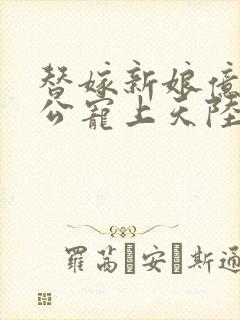 替嫁新娘億
公寵上天陸
羅茜·安·斯通